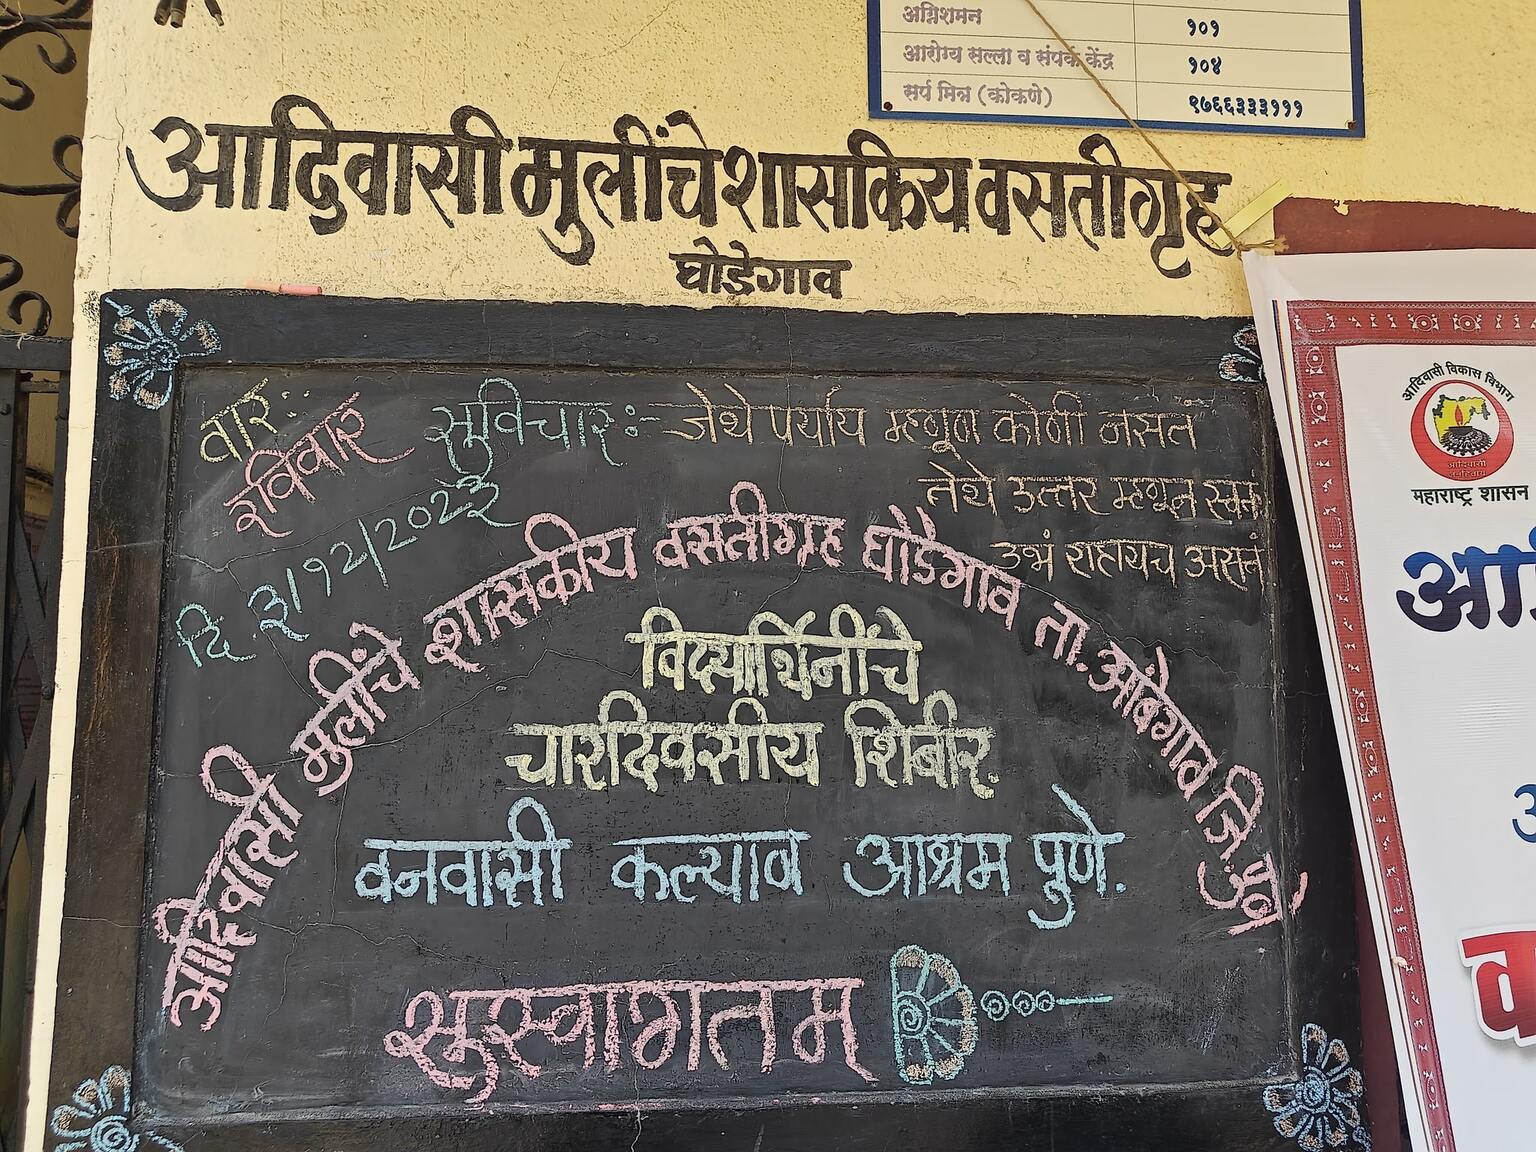 अग्निशमन १०१
आरोग्य सल्ला व संपर्क केंद्र १०४
सर्प मित्र (कोकणे) ९७६६३३३१११
आदिवासी मुलींचे शासकिय वसतीगृह
घोडेगाव
वार:-
रविवार
दि ३/१२/२०२३
सुविचार:- जेथे पर्याय म्हणून कोणी नसतं
तेथे उत्तर म्हणून स्वतः
उभं राहायचं असतं
आदिवासी मुलींचे शासकीय वसतीगृह घोडेगाव ता. आंबेगाव जि. पुणे
विद्यार्थिनींचे
चारदिवसीय शिबीर.
वनवासी कल्याण आश्रम पुणे.
सुस्वागतम
आदिवासी विकास विभाग
महाराष्ट्र शासन